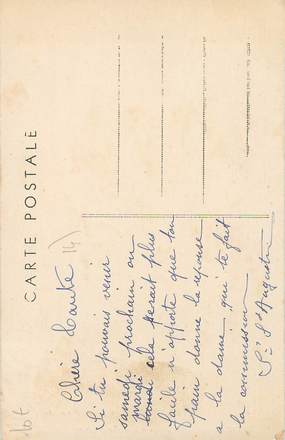 CARTE POSTALE
14)
Chère Tante
Si tu pouvais venir
samedi prochain ou
mardi
lundi cela serait plus
facile n'apporte que ton
pain donne la reponse
a la dame qui te fait
la commission
St Augustin
10t